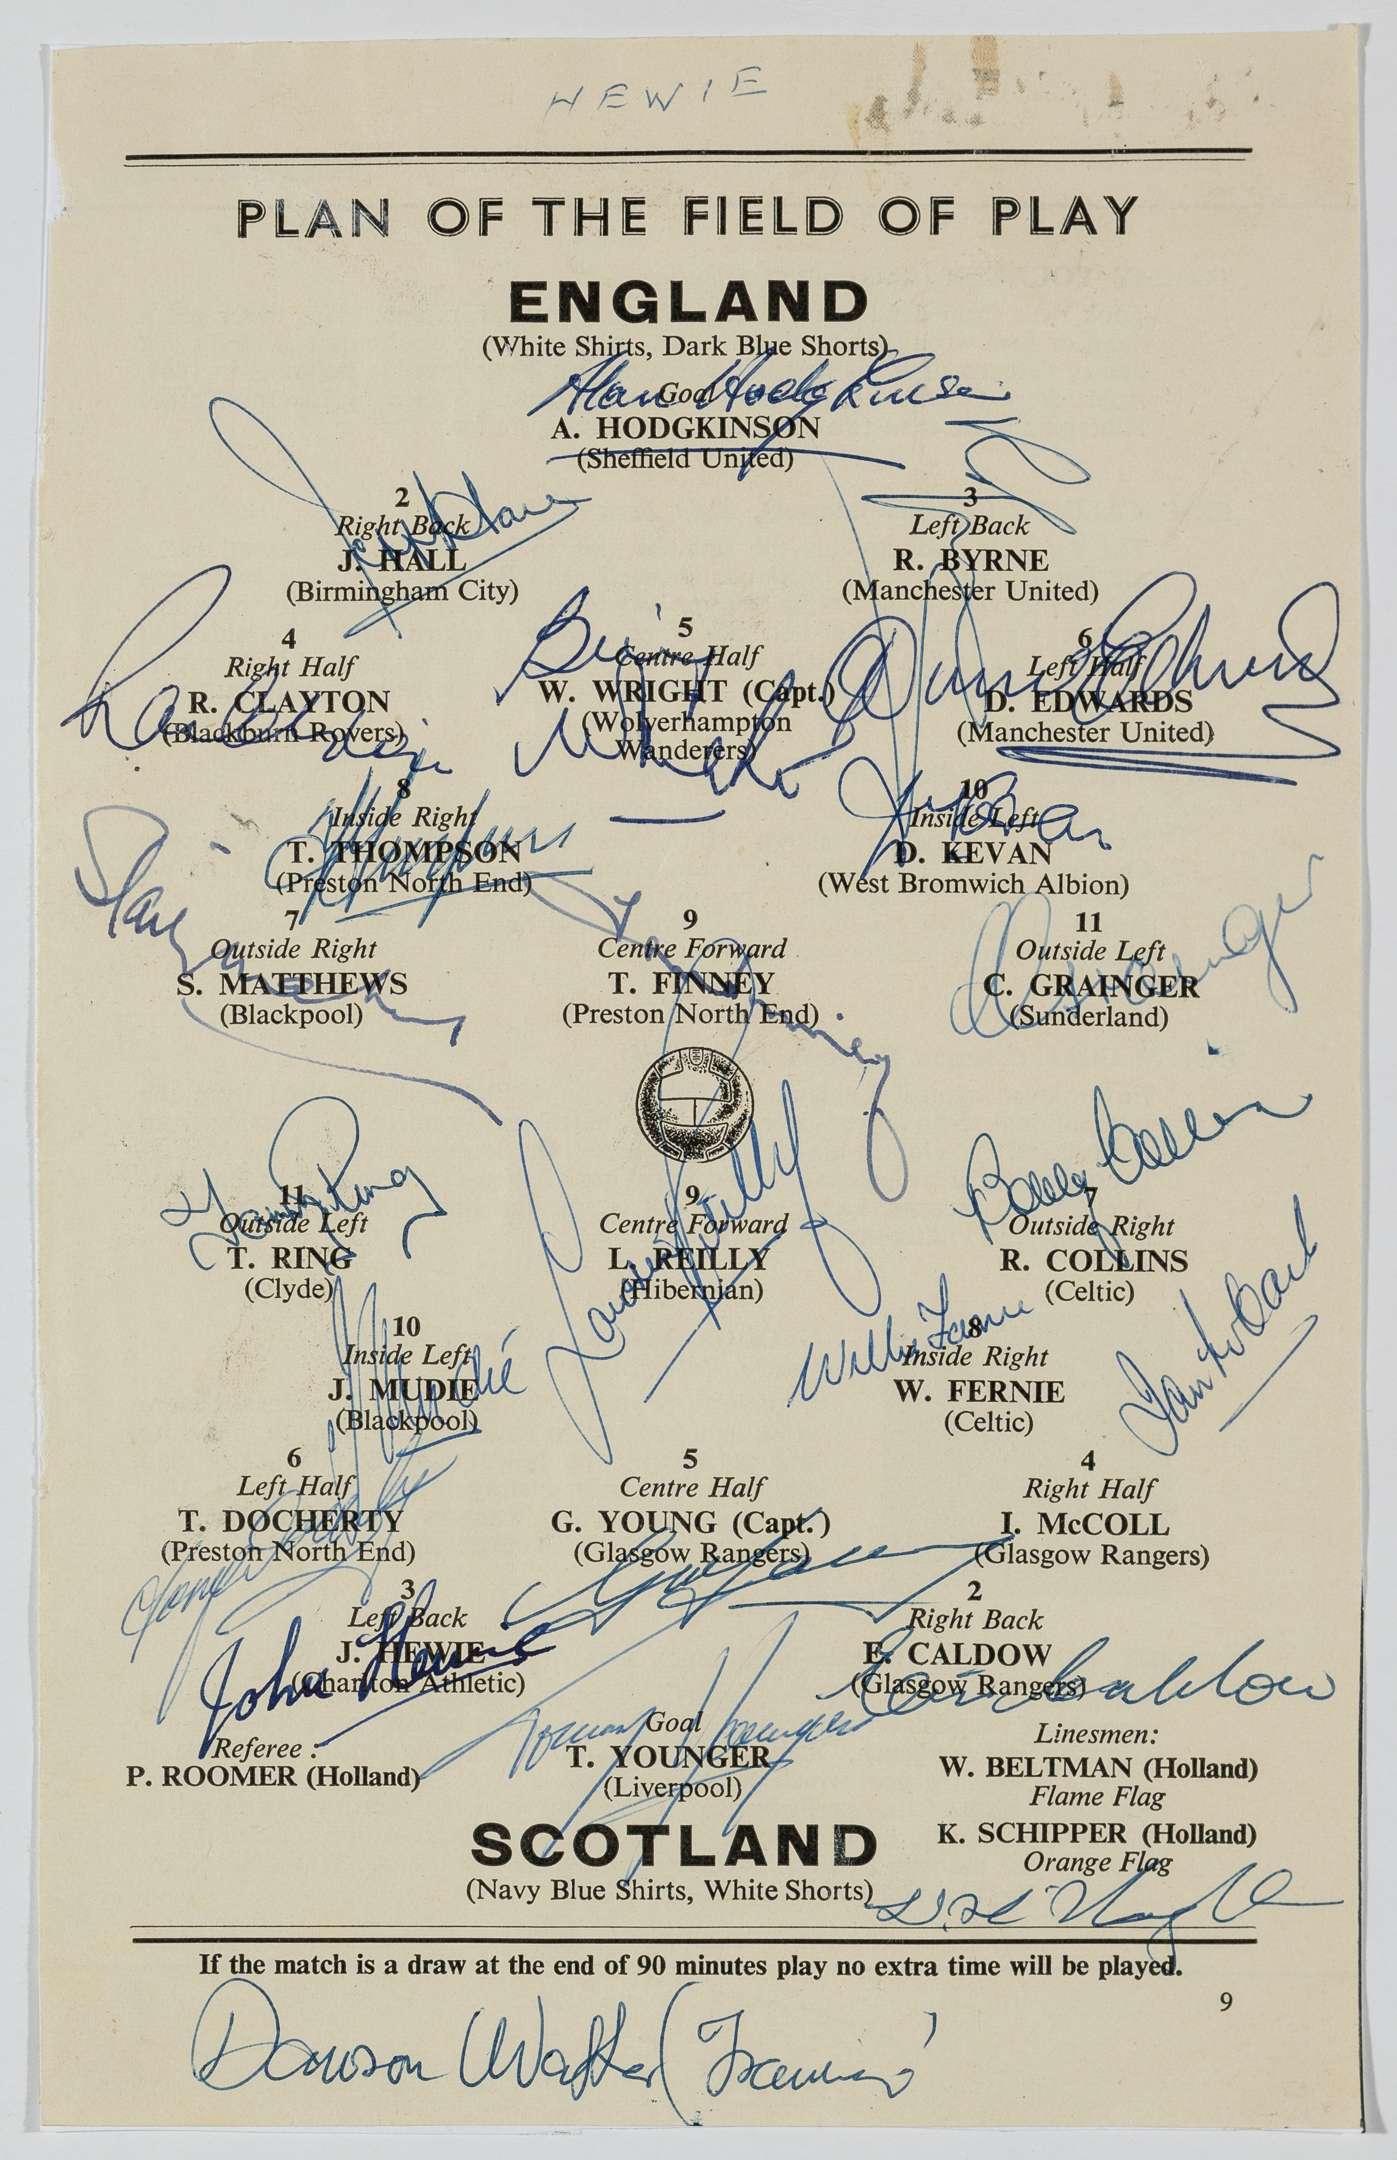 HEWIE
PLAN OF THE FIELD OF PLAY
ENGLAND
(White Shirts, Dark Blue Shorts)
Alan Hodgkinson
Goal
A. HODGKINSON
(Sheffield United)
2
Right Back
J. HALL
(Birmingham City)
3
Left Back
R. BYRNE
(Manchester United)
4
Right Half
R. CLAYTON
(Blackburn Rovers)
5
Centre Half
W. WRIGHT (Capt.)
(Wolverhampton
Wanderers)
6
Left Half
D. EDWARDS
(Manchester United)
8
Inside Right
T. THOMPSON
(Preston North End)
10
Inside Left
D. KEVAN
(West Bromwich Albion)
7
Outside Right
S. MATTHEWS
(Blackpool)
9
Centre Forward
T. FINNEY
(Preston North End)
11
Outside Left
C. GRAINGER
(Sunderland)
Tommy Ring
11
Outside Left
T. RING
(Clyde)
9
Centre Forward
L. REILLY
(Hibernian)
Bobby Collins
7
Outside Right
R. COLLINS
(Celtic)
10
Inside Left
J. MUDIE
(Blackpool)
Willie Fernie
8
Inside Right
W. FERNIE
(Celtic)
Ian McColl
6
Left Half
T. DOCHERTY
(Preston North End)
5
Centre Half
G. YOUNG (Capt.)
(Glasgow Rangers)
4
Right Half
I. McCOLL
(Glasgow Rangers)
3
Left Back
J. HEWIE
(Charlton Athletic)
John Hewie
2
Right Back
E. CALDOW
(Glasgow Rangers)
Eric Caldow
Referee :
P. ROOMER (Holland)
Goal
T. YOUNGER
(Liverpool)
Tommy Younger
Linesmen:
W. BELTMAN (Holland)
Flame Flag
K. SCHIPPER (Holland)
Orange Flag
SCOTLAND
(Navy Blue Shirts, White Shorts)
If the match is a draw at the end of 90 minutes play no extra time will be played.
9
Dawson Walker (Trainer)